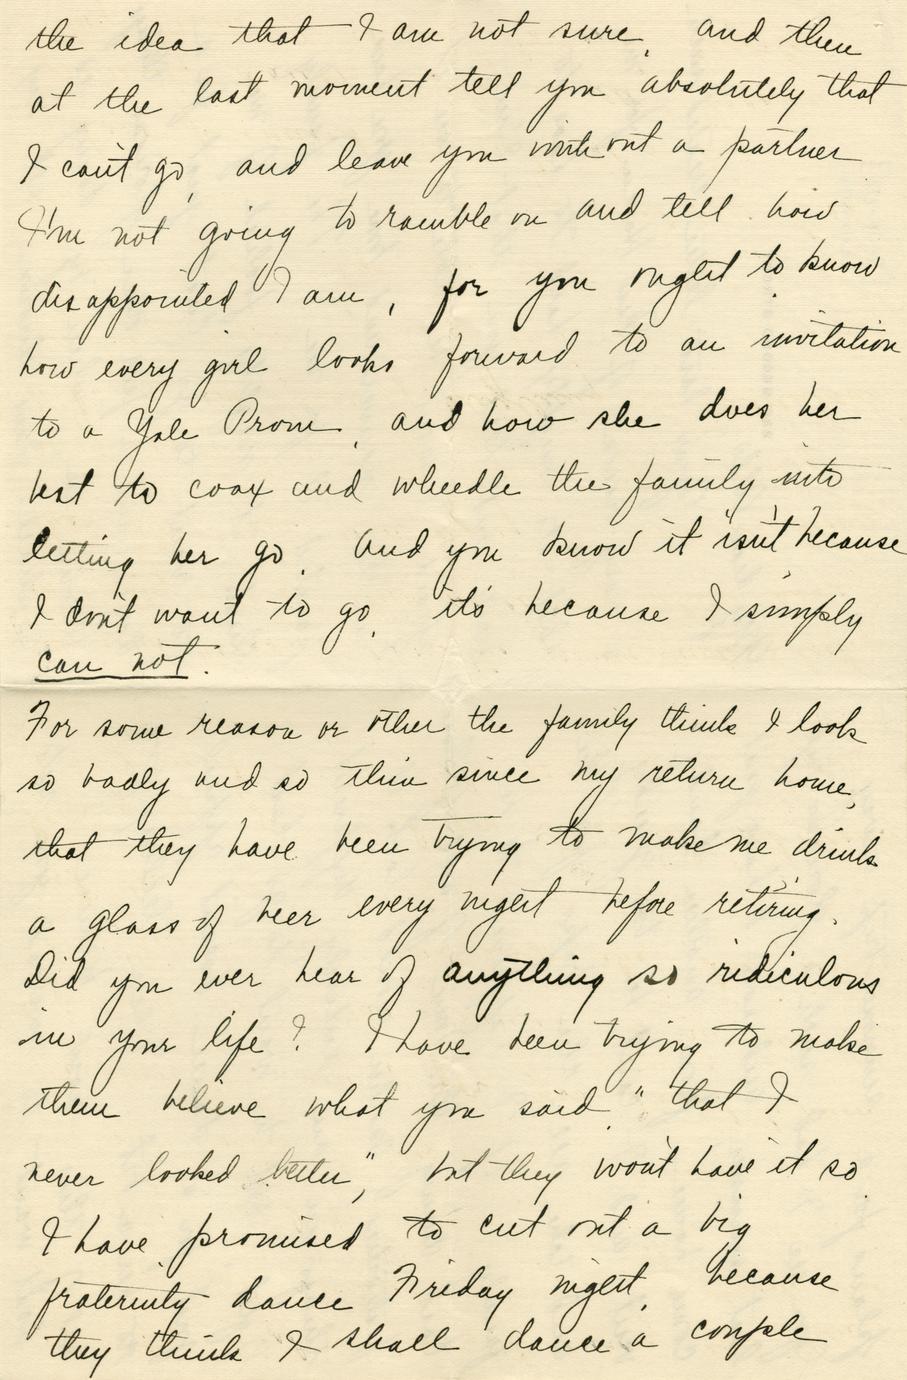 the idea that I am not sure, and then
at the last moment tell you absolutely that
I can't go, and leave you without a partner
I'm not going to ramble on and tell how
disappointed I am, for you ought to know
how every girl looks forward to an invitation
to a Yale Prom, and how she does her
best to coax and wheedle the family into
letting her go. And you know it isn't because
I don't want to go, it's because I simply
can not.
For some reason or other the family think I look
so badly and so thin since my return home,
that they have been trying to make me drink
a glass of beer every night before retiring.
Did you ever hear of anything so ridiculous
in your life? I have been trying to make
them believe what you said, "that I
never looked better", but they won't have it so.
I have promised to cut out a big
fraternity dance Friday night, because
they think I shall dance a couple